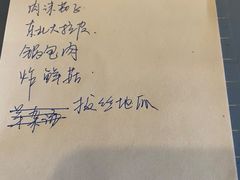 肉沫茄子
东北大拉皮
锅包肉
炸鲜菇
拔丝地瓜